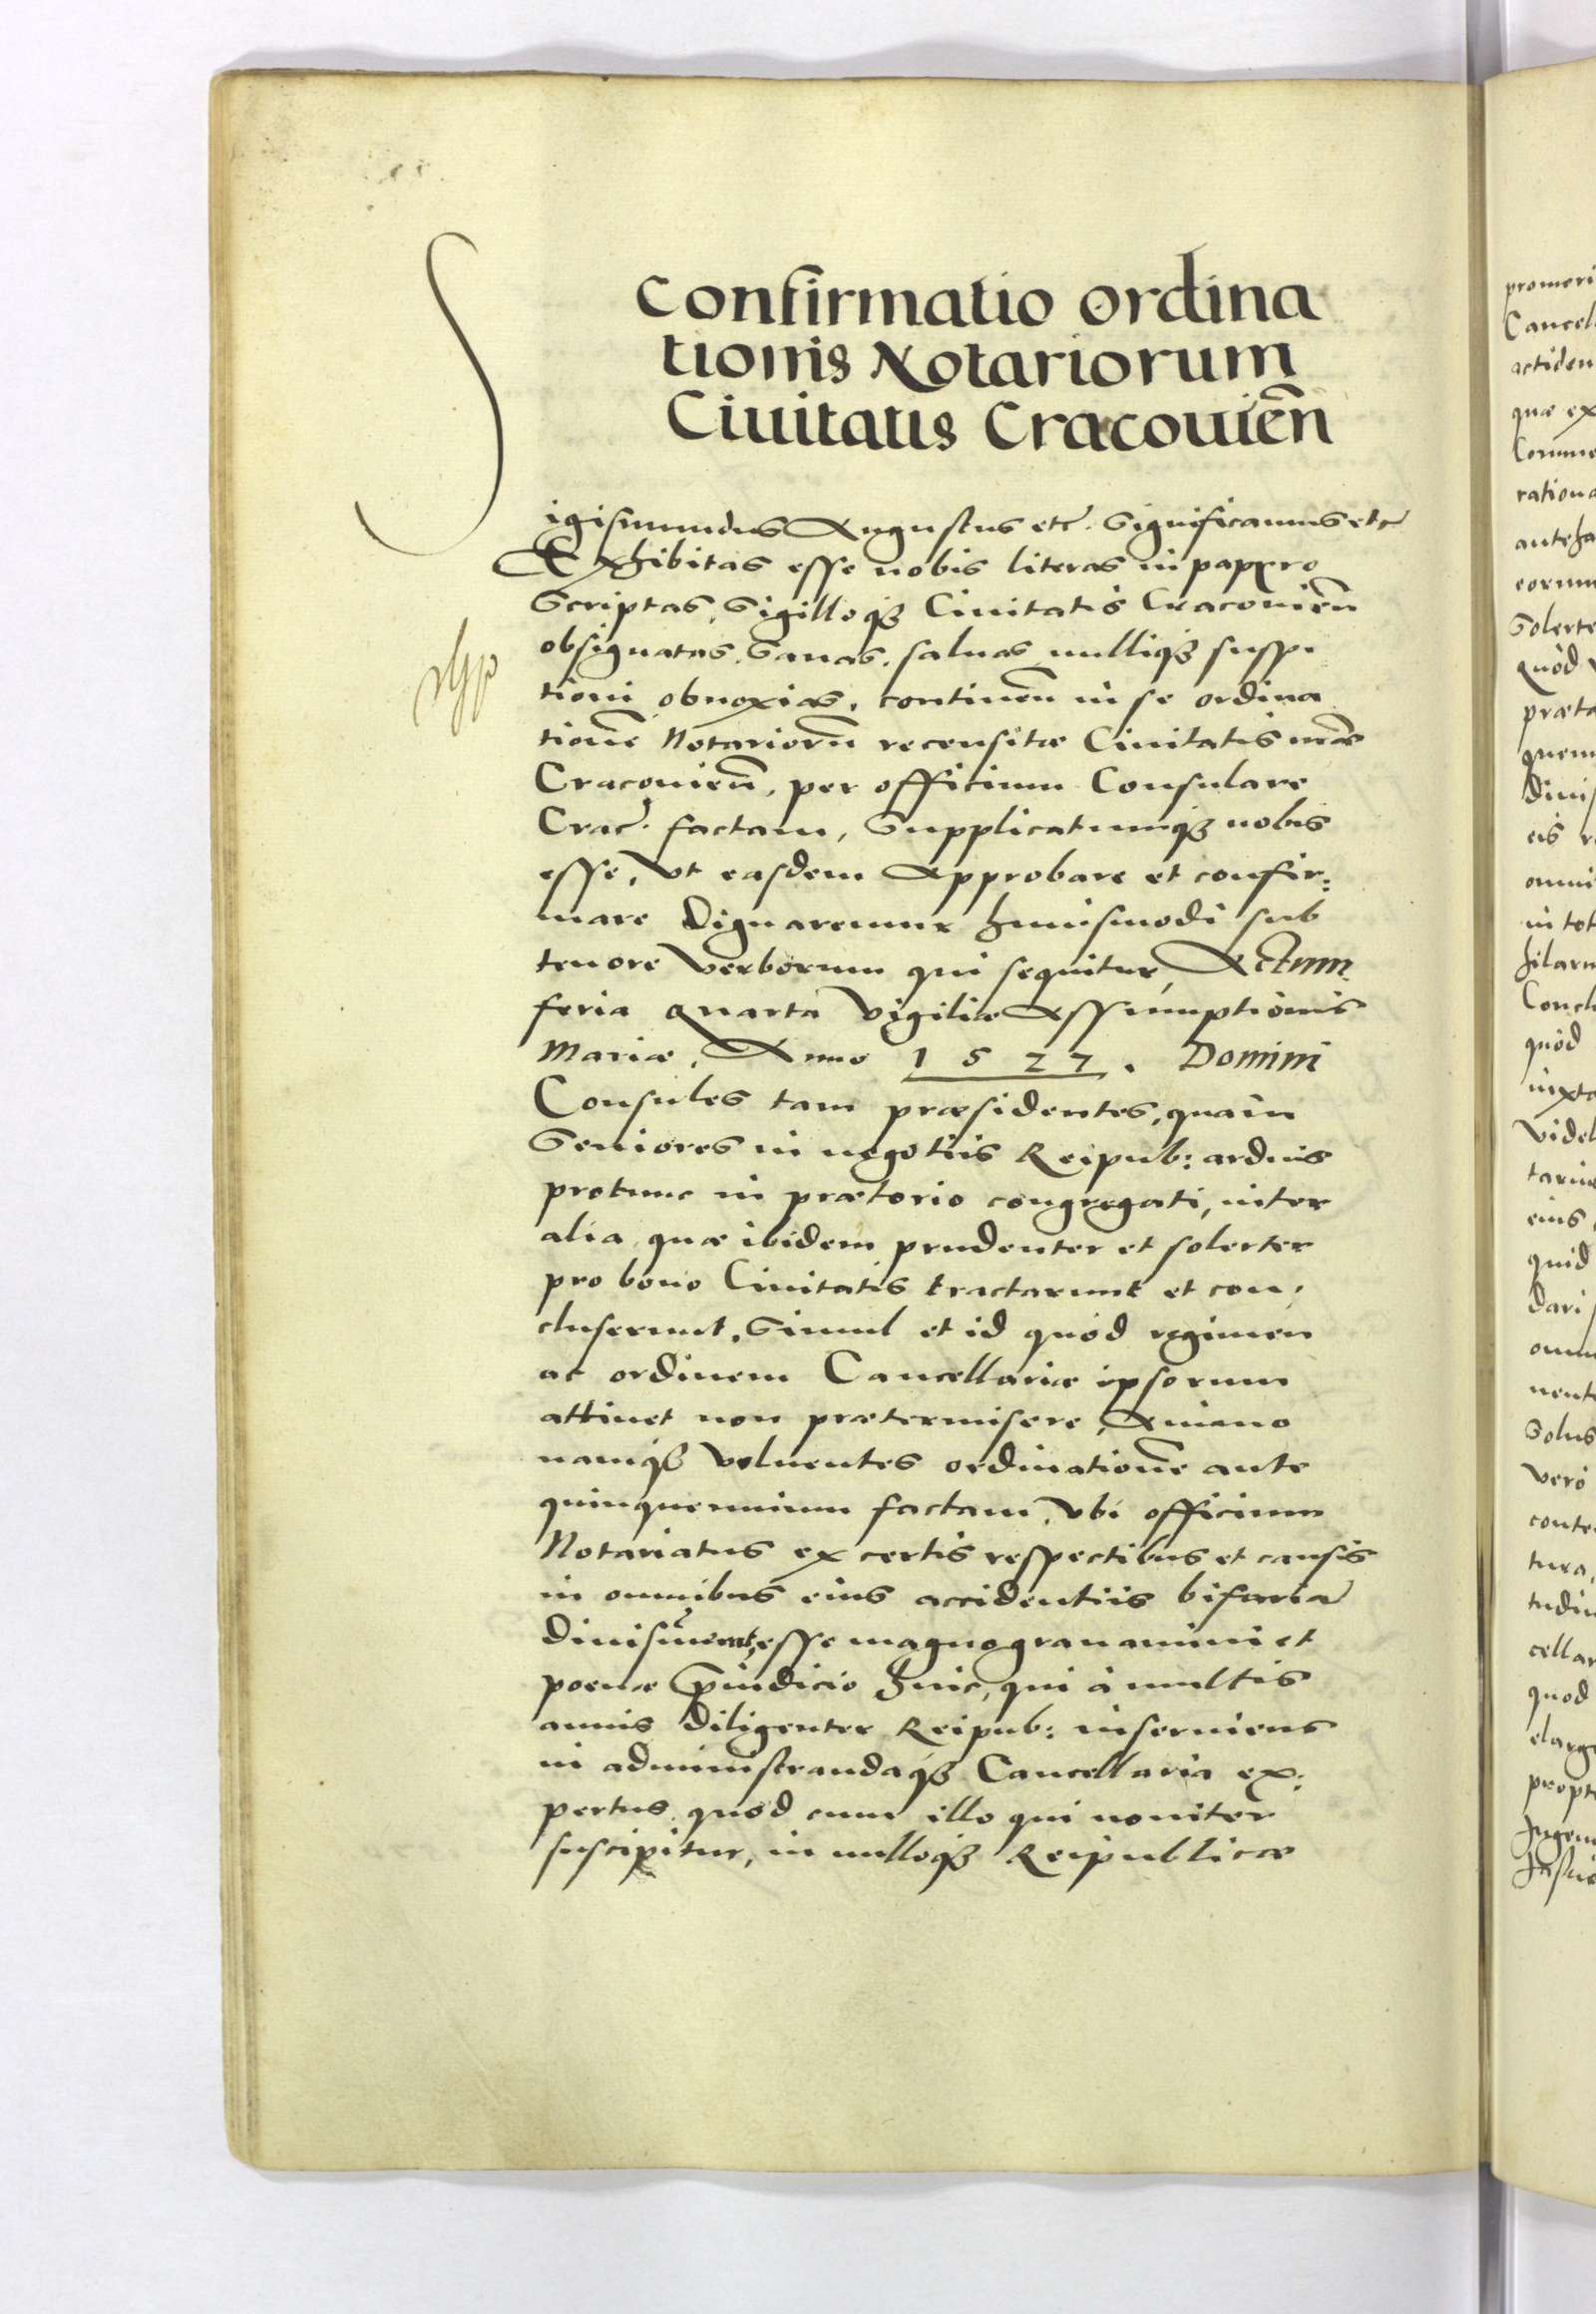 Confirmatio ordina
tionis Notariorum
Ciuitatis Cracouien̄
Sigismundus Augustus etc. Significamus etc
Exhibitas esse nobis literas in papyro
Scriptas, Sigilloqȝ Ciuitatis Cracouien̄
obsignatas. Sanas. saluas nulliqȝ suspi
tioni obnoxias. continen̄ in se ordina
tionē Notariorū recensitæ Ciuitatis nr̄æ
Cracouien̄, per officium Consulare
Crac. factam, Supplicatumqȝ nobis
esse, Vt easdem Approbare et confir:
mare Dignaremur huiusmodi sub
tenore Verborum qui sequitur, Actum
feria Quarta Vigiliæ Assumptionis
Mariæ, Anno 1527. Domini
Consules tam præsidentes, quàm
Seniores in negotiis Reipub: arduis
protunc in prætorio congregati, inter
alia quæ ibidem prudenter et solerter
pro bono Ciuitatis tractarunt et con:
cluserunt. Simul et id quod regimen
ac ordinem Cancellariæ ipsorum
attinet non prætermisere, Animo
namqȝ Voluentes ordinationē ante
quinquennium factam, Vbi officium
Notariatus ex certis respectibus et causis
in omnibus eius accidentiis bifaria
esse magno grauamini et
poenæ p̄iudicio huic, qui à multis
annis Diligenter Reipub: inseruiens
in administrandaqȝ Cancellaria ex:
pertus, quod cum illo qui nouiter
suscipitur, in nulloqȝ Reipublicæ
promeri
Cancel
actiden
quæ ex
Comme
rationa
anteha
eorum
Solerte
quòd
præta
quem
diuis
eis r
omni
in tot
hilaru
Concl
quòd
iuxta
Videl
tariu
eius
quid
dari
omn
nent
Solus
Verò
conte
tura,
tudin
cellar
quod
elarg
propt
Ingen